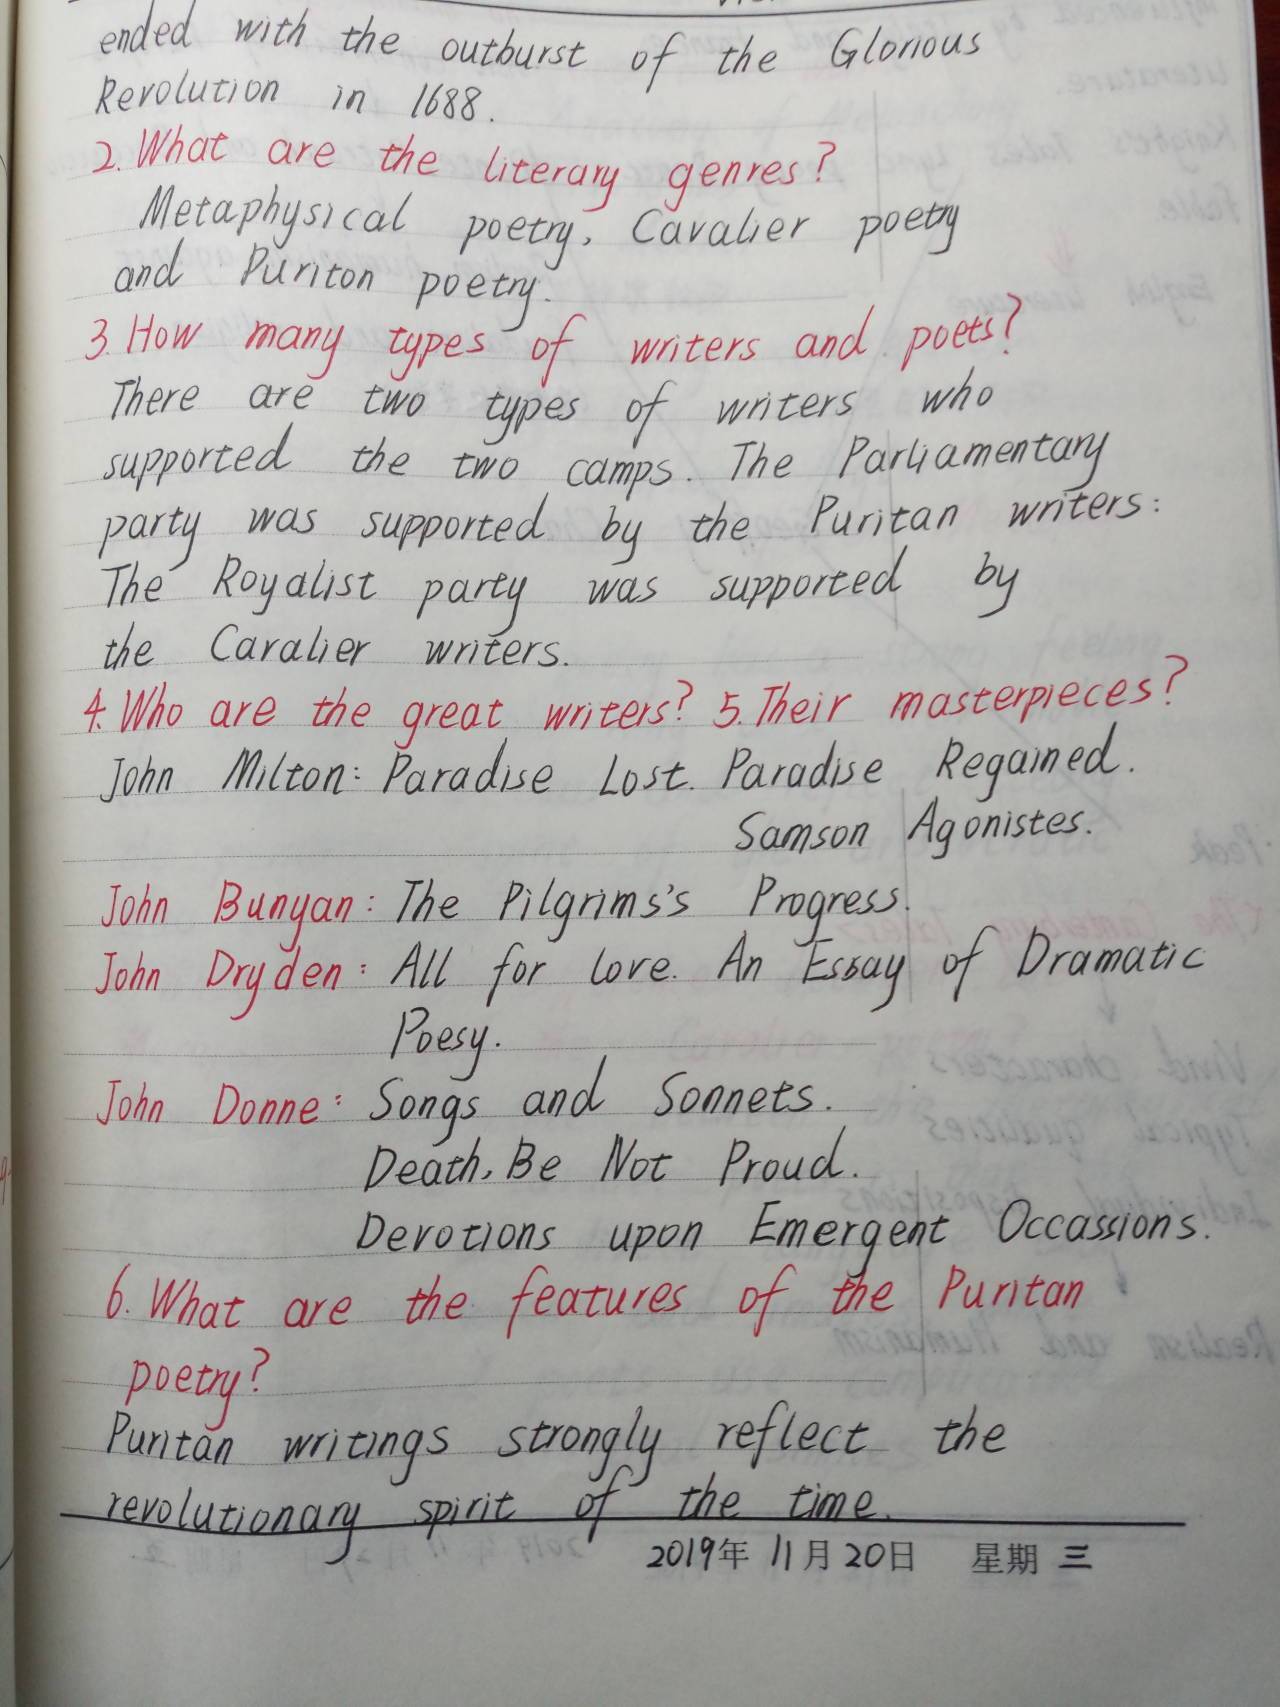 ended with the outburst of the Glorious
Revolution in 1688.
2. What are the literary genres?
Metaphysical poetry, Cavalier poetry
and Puriton poetry.
3. How many types of writers and poets?
There are two types of writers who
supported the two camps. The Parliamentary
party was supported by the Puritan writers:
The Royalist party was supported by
the Cavalier writers.
4. Who are the great writers? 5. Their masterpieces?
John Milton: Paradise Lost. Paradise Regained.
Samson Agonistes.
John Bunyan: The Pilgrims's Progress.
John Dryden: All for love. An Essay of Dramatic
Poesy.
John Donne: Songs and Sonnets.
Death, Be Not Proud.
Devotions upon Emergent Occassions.
6. What are the features of the Puritan
poetry?
Puritan writings strongly reflect the
revolutionary spirit of the time.
2019年 11月20日 星期 三